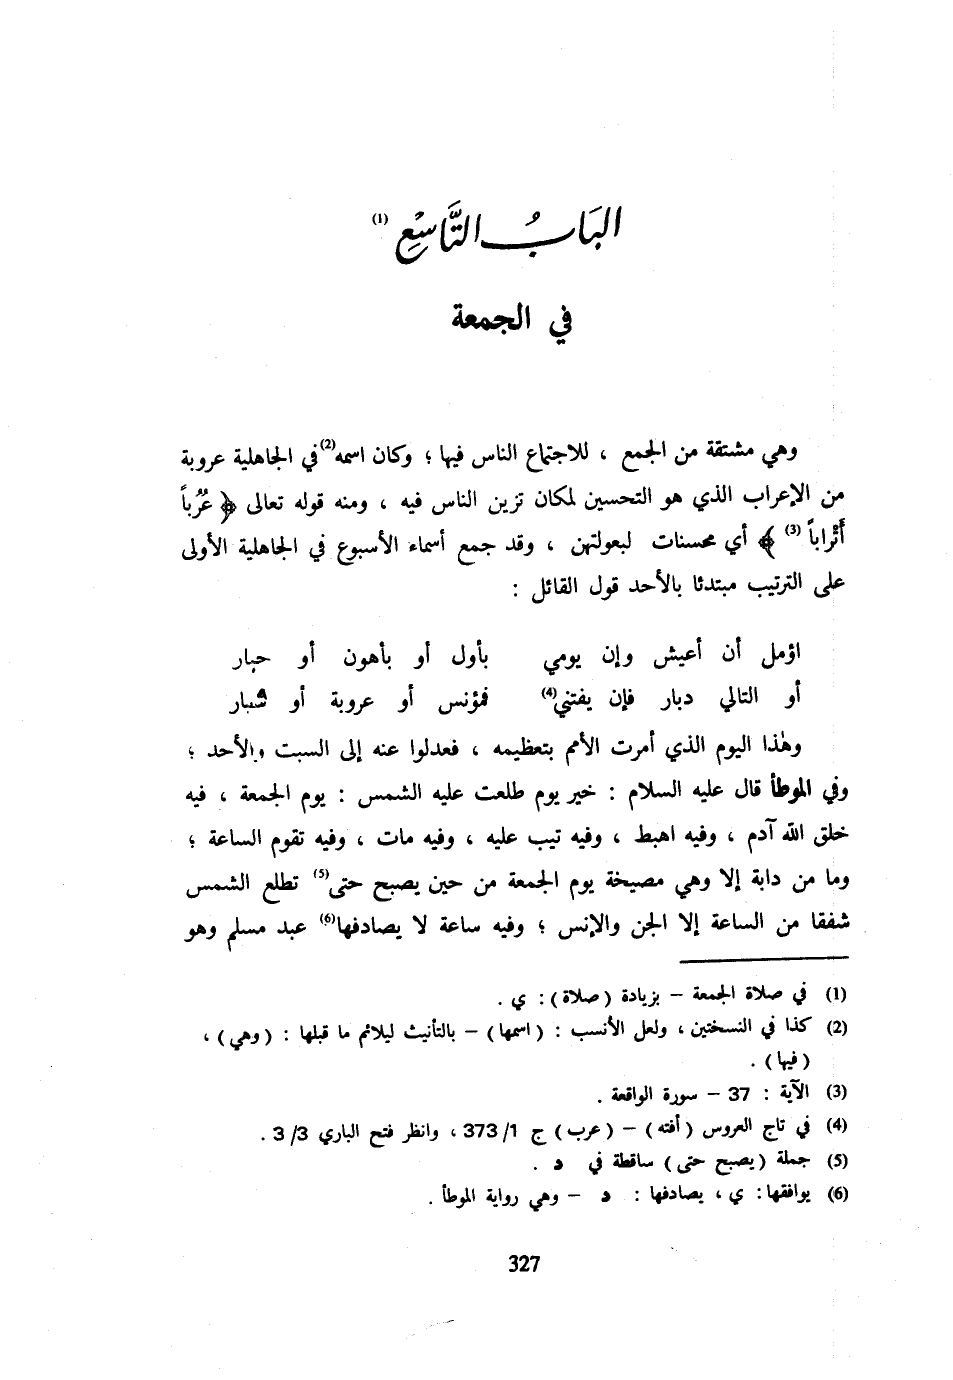 البَابُ التَّاسِع (1)
في الجمعة
وهي مشتقة من الجمع ، للاجتماع الناس فيها ؛ وكان اسمه(2) في الجاهلية عروبة
من الإعراب الذي هو التحسين لمكان تزين الناس فيه ، ومنه قوله تعالى ﴿ عُرُباً
أَتْراباً (3) ﴾ أي محسنات لبعولتهن ، وقد جمع أسماء الأسبوع في الجاهلية الأولى
على الترتيب مبتدئا بالأحد قول القائل :
اؤمل أن أعيش وإن يومي بأول أو بأهون أو جبار
أو التالي دبار فإن يفتني(4) فمؤنس أو عروبة أو شبار
وهٰذا اليوم الذي أمرت الأمم بتعظيمه ، فعدلوا عنه إلى السبت والأحد ؛
وفي الموطأ قال عليه السلام : خير يوم طلعت عليه الشمس : يوم الجمعة ، فيه
خلق الله آدم ، وفيه اهبط ، وفيه تيب عليه ، وفيه مات ، وفيه تقوم الساعة ؛
وما من دابة إلا وهي مصيخة يوم الجمعة من حين يصبح حتى(5) تطلع الشمس
شفقا من الساعة إلا الجن والإنس ؛ وفيه ساعة لا يصادفها(6) عبد مسلم وهو
(1) في صلاة الجمعة – بزيادة (صلاة) : ي .
(2) كذا في النسختين ، ولعل الأنسب : (اسمها) – بالتأنيث ليلائم ما قبلها : (وهي) ،
(فيها) .
(3) الآية : 37 – سورة الواقعة .
(4) في تاج العروس (أفته) – (عرب) ج 1/ 373 ، وانظر فتح الباري 3/ 3 .
(5) جملة (يصبح حتى) ساقطة في د .
(6) يوافقها : ي ، يصادفها : د – وهي رواية الموطأ .
327